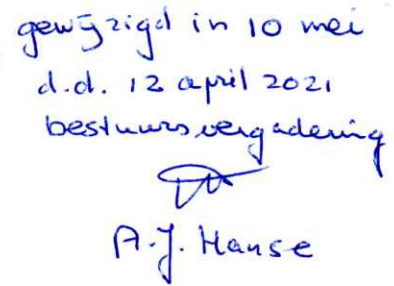 gewijzigd in 10 mei
d.d. 12 april 2021
bestuursvergadering
A.J. Hanse